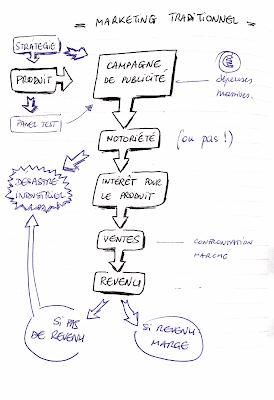 = MARKETING TRADITIONNEL =
STRATEGIE
PRODUIT
PANEL TEST
CAMPAGNE
DE PUBLICITÉ
€
dépenses
massives.
NOTORIÉTÉ
(ou pas !)
DESASTRE
INDUSTRIEL
INTÉRÊT POUR
LE PRODUIT
VENTES
CONFRONTATION
MARCHE
REVENU
SI PAS
DE REVENU
SI REVENU
MARGE